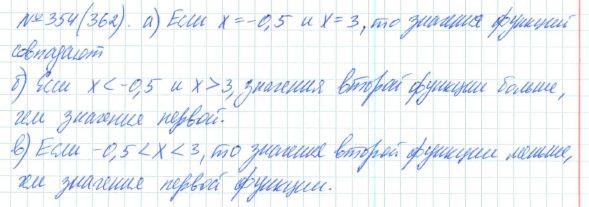 №354(362). а) Если x=-0,5 и x=3, то значения функций
совпадают
б) Если x<-0,5 и x>3, значения второй функции больше,
чем значение первой.
в) Если -0,5<x<3, то значения второй функции меньше,
чем значение первой функции.